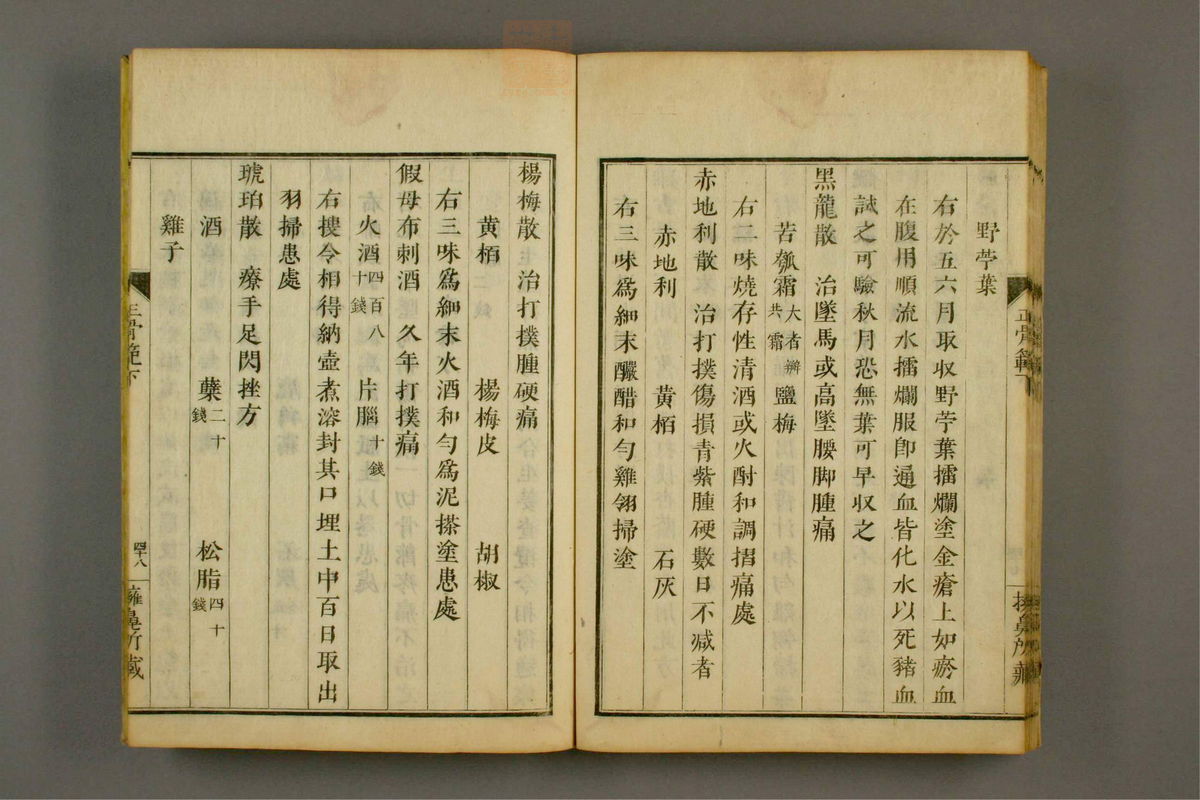 野苧葉
右於五六月取収野苧葉擂爛塗金瘡上如瘀血
在腹用順流水擂爛服卽通血皆化水以死豬血
誠之可驗秋月恐無葉可早収之
黒龍散　治墜馬或高墜腰脚腫痛
苦瓠霜大者辧共霜　鹽梅
右二味燒存性清酒或火酎和調搨痛處
赤地利散　治打撲傷損青紫腫硬數日不減者
赤地利　黄栢　石灰
右三味爲細末釅醋和勻雞翎掃塗
正骨範下
楊梅散　治打撲腫硬痛
黄栢　楊梅皮　胡椒
右三味爲細末火酒和勻爲泥搽塗患處
假母布刺酒　久年打撲痛
火酒四百八十錢　片腦十錢
右摟令相得納壺煮溶封其口埋土中百日取出
羽掃患處
琥珀散　療手足閃挫方
酒　蘗二十錢　松脂四十錢
雞子
正骨範下
四十八